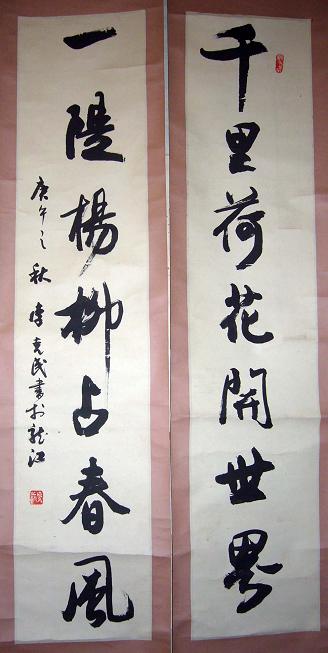 千里荷花開世界
一隄楊柳占春風
庚午之秋李克民書於龍江